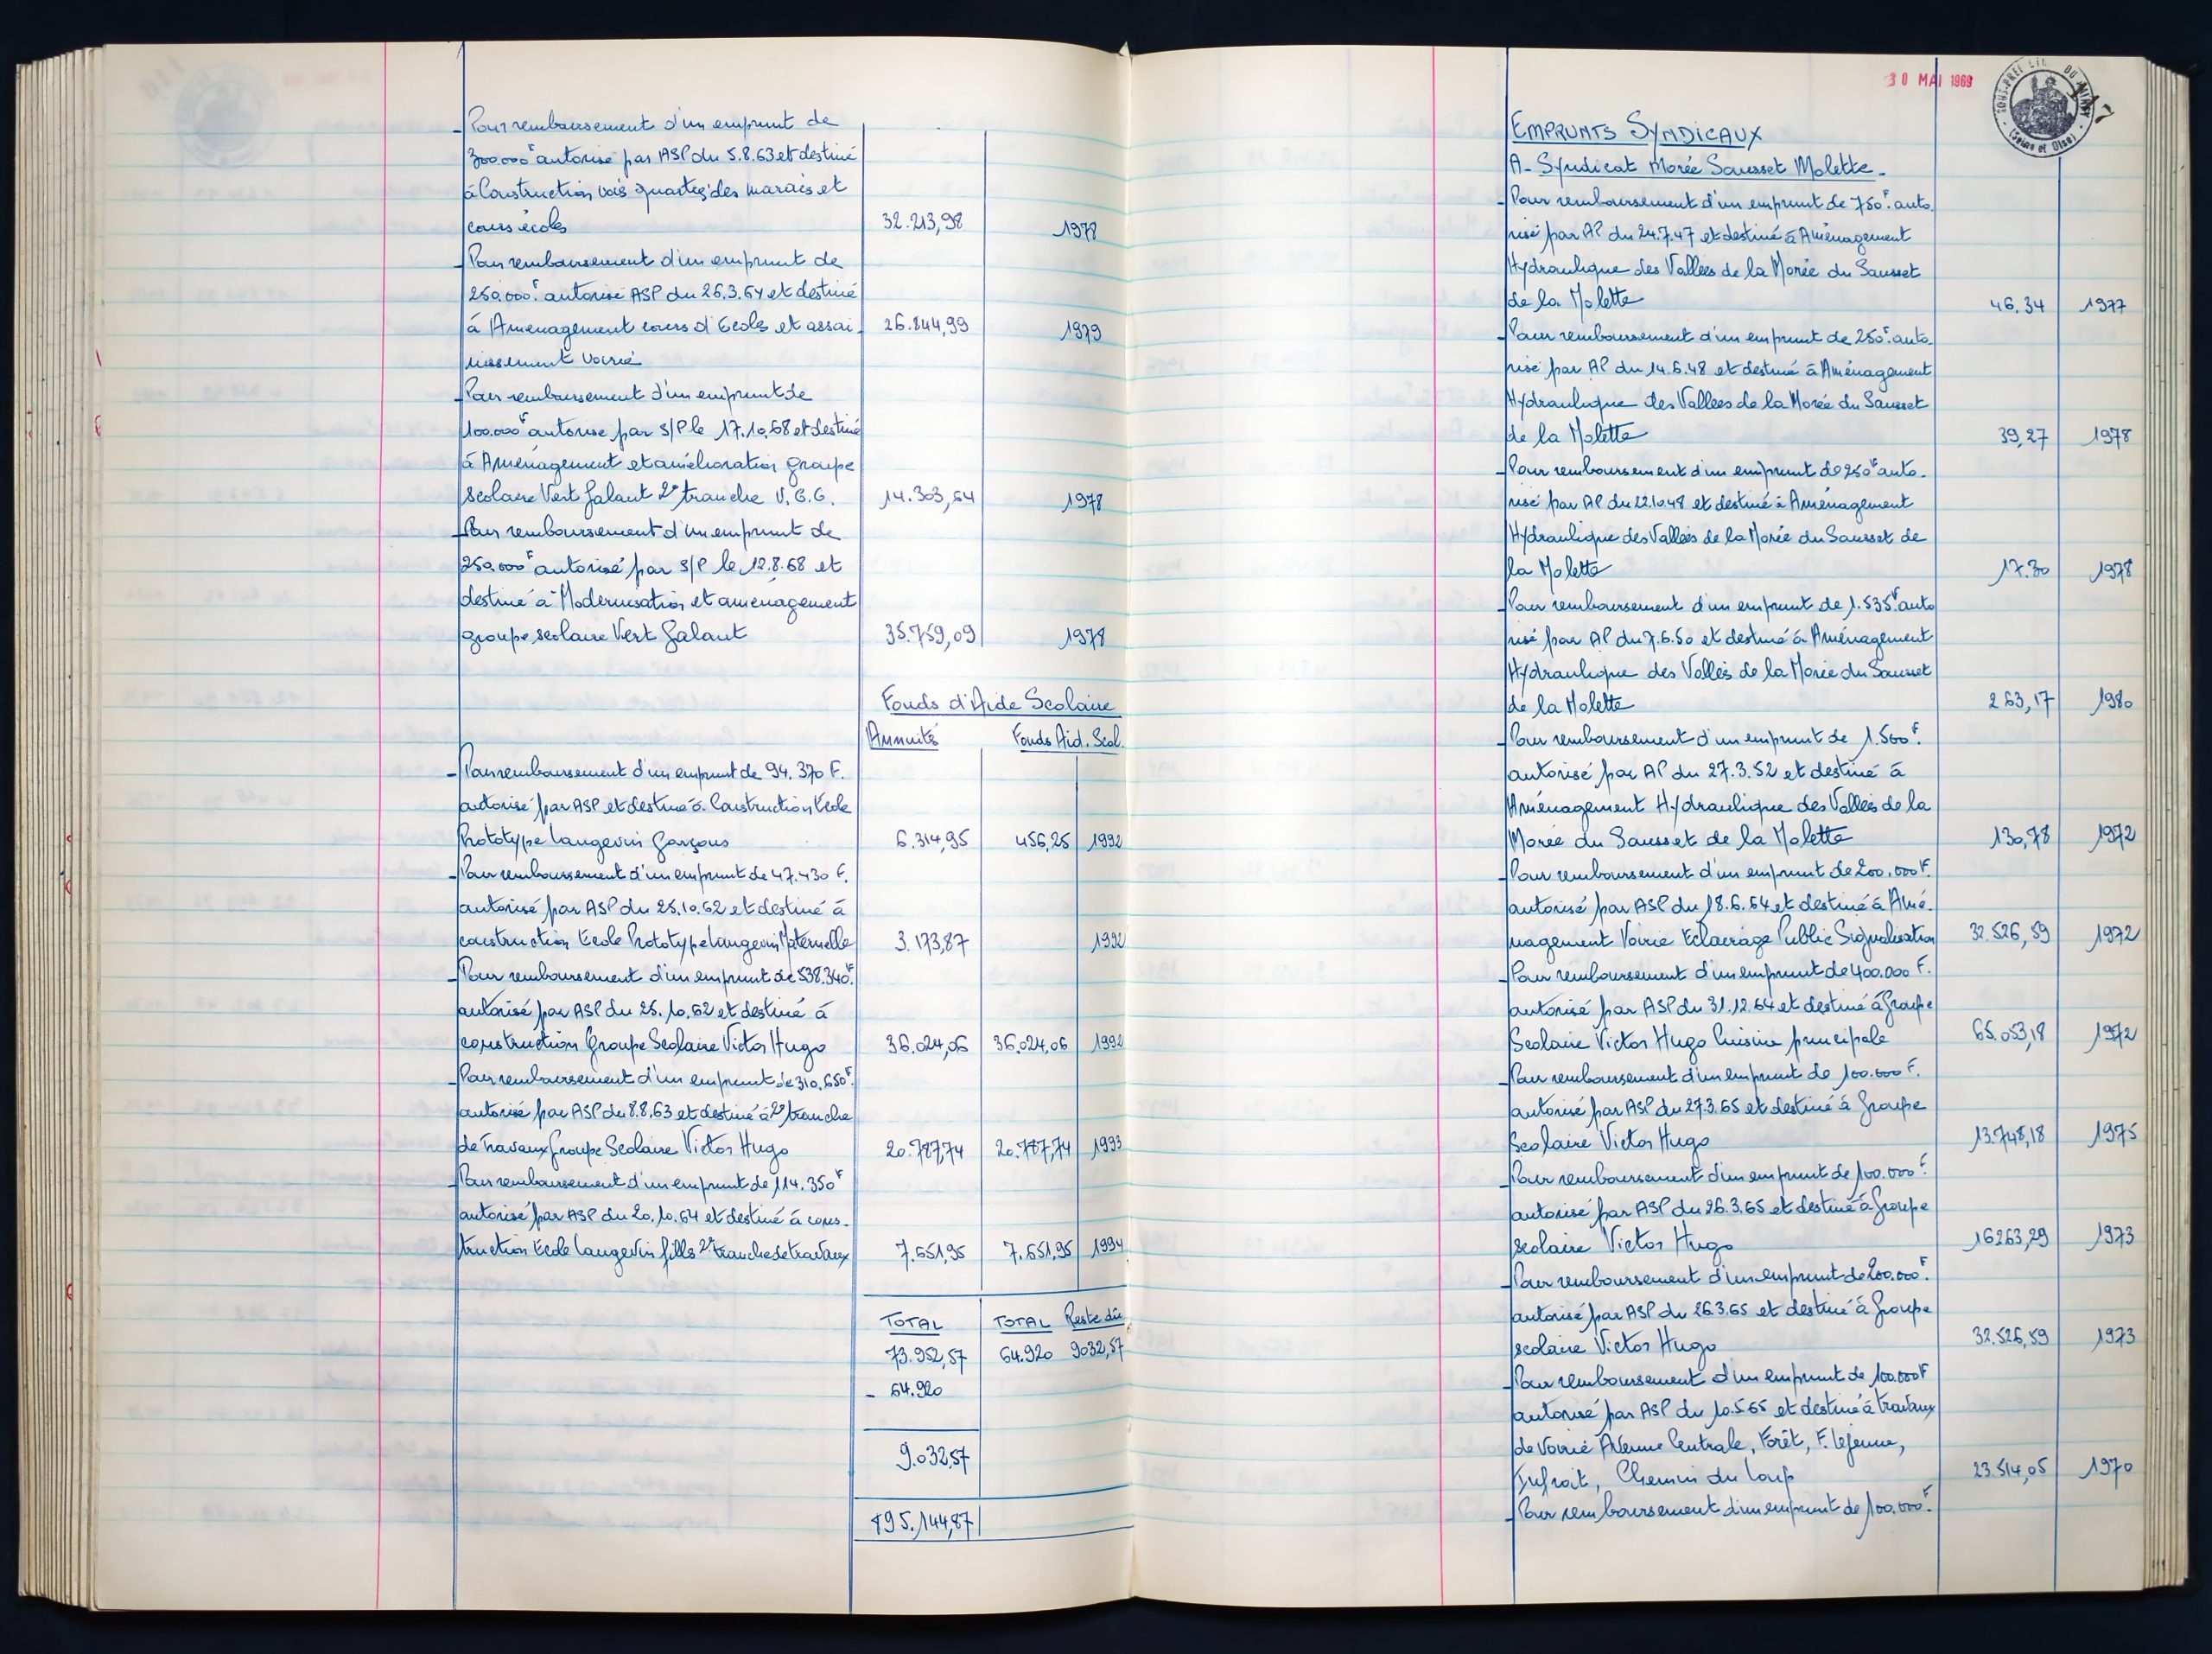 - Pour remboursement d'un emprunt de
300.000F autorisé par ASP du 5.8.63 et destiné
à Construction vois quartier des marais et
cours écoles 32.213,98 1978
- Pour remboursement d'un emprunt de
250.000F autorisé ASP du 26.3.64 et destiné
à Aménagement cours d'Ecoles et assai- 26.844,99 1979
nissement voirie
- Pour remboursement d'un emprunt de
100.000F autorisé par S/P le 17.10.68 et destiné
à Aménagement et amélioration groupe
scolaire Vert Galant 2e tranche V.G.G. 14.303,64 1978
- Pour remboursement d'un emprunt de
250.000F autorisé par S/P le 12.8.68 et
destiné à Modernisation et aménagement
groupe scolaire Vert Galant 35.759,09 1978
Fonds d'Aide Scolaire
Annuités Fonds Aid. Scol.
- Pour remboursement d'un emprunt de 94.370 F.
autorisé par ASP et destiné à Construction Ecole
Prototype Langevin Garçons 6.314,95 456,25 1992
- Pour remboursement d'un emprunt de 47.430 F.
autorisé par ASP du 25.10.62 et destiné à
construction Ecole Prototype Langevin Maternelle 3.173,87 1992
- Pour remboursement d'un emprunt de 538.340F.
autorisé par ASP du 25.10.62 et destiné à
construction Groupe Scolaire Victor Hugo 36.024,06 36.024,06 1992
- Pour remboursement d'un emprunt de 310.650F.
autorisé par ASP du 8.8.63 et destiné à 2e tranche
de Travaux Groupe Scolaire Victor Hugo 20.787,74 20.787,74 1993
- Pour remboursement d'un emprunt de 114.350F
autorisé par ASP du 20.10.64 et destiné à cons-
truction Ecole Langevin filles 2e tranche de travaux 7.651,95 7.651,95 1994
TOTAL TOTAL Reste dû
73.952,57 64.920 9032,57
- 64.920
9.032,57
895.144,87
30 MAI 1969
(Seine et Oise)
EMPRUNTS SYNDICAUX
A- Syndicat Morée Sausset Molette -
- Pour remboursement d'un emprunt de 750F. auto-
risé par AP du 24.7.47 et destiné à Aménagement
Hydraulique des Vallées de la Morée du Sausset
de la Molette 46.34 1977
- Pour remboursement d'un emprunt de 250F. auto-
risé par AP du 14.6.48 et destiné à Aménagement
Hydraulique des Vallées de la Morée du Sausset
de la Molette 39,27 1978
- Pour remboursement d'un emprunt de 250F auto-
risé par AP du 22.10.48 et destiné à Aménagement
Hydraulique des Vallées de la Morée du Sausset de
la Molette 17.30 1978
- Pour remboursement d'un emprunt de 1.535F. auto
risé par AP du 7.6.50 et destiné à Aménagement
Hydraulique des Vallés de la Morée du Sausset
de la Molette 263,17 1980
- Pour remboursement d'un emprunt de 1.500F.
autorisé par AP du 27.3.52 et destiné à
Aménagement Hydraulique des Vallées de la
Morée du Sausset de la Molette 130,78 1972
- Pour remboursement d'un emprunt de 200.000F.
autorisé par ASP du 18.6.64 et destiné à Amé-
nagement Voirie Eclairage Public Signalisation 32.526,59 1972
- Pour remboursement d'un emprunt de 400.000 F.
autorisé par ASP du 31.12.64 et destiné à Groupe
Scolaire Victor Hugo Cuisine principale 65.053,18 1972
- Pour remboursement d'un emprunt de 100.000 F.
autorisé par ASP du 27.3.65 et destiné à Groupe
Scolaire Victor Hugo 13.748,18 1975
- Pour remboursement d'un emprunt de 100.000F.
autorisé par ASP du 26.3.65 et destiné à Groupe
scolaire Victor Hugo 16263,29 1973
- Pour remboursement d'un emprunt de 200.000F.
autorisé par ASP du 26.3.65 et destiné à Groupe
scolaire Victor Hugo 32.526,59 1973
- Pour remboursement d'un emprunt de 100.000F
autorisé par ASP du 10.5.65 et destiné à travaux
de Voirie Avenue Centrale, Forêt, F. Lejeune,
Chemin du Loup 23.514,05 1970
- Pour remboursement d'un emprunt de 100.000F.